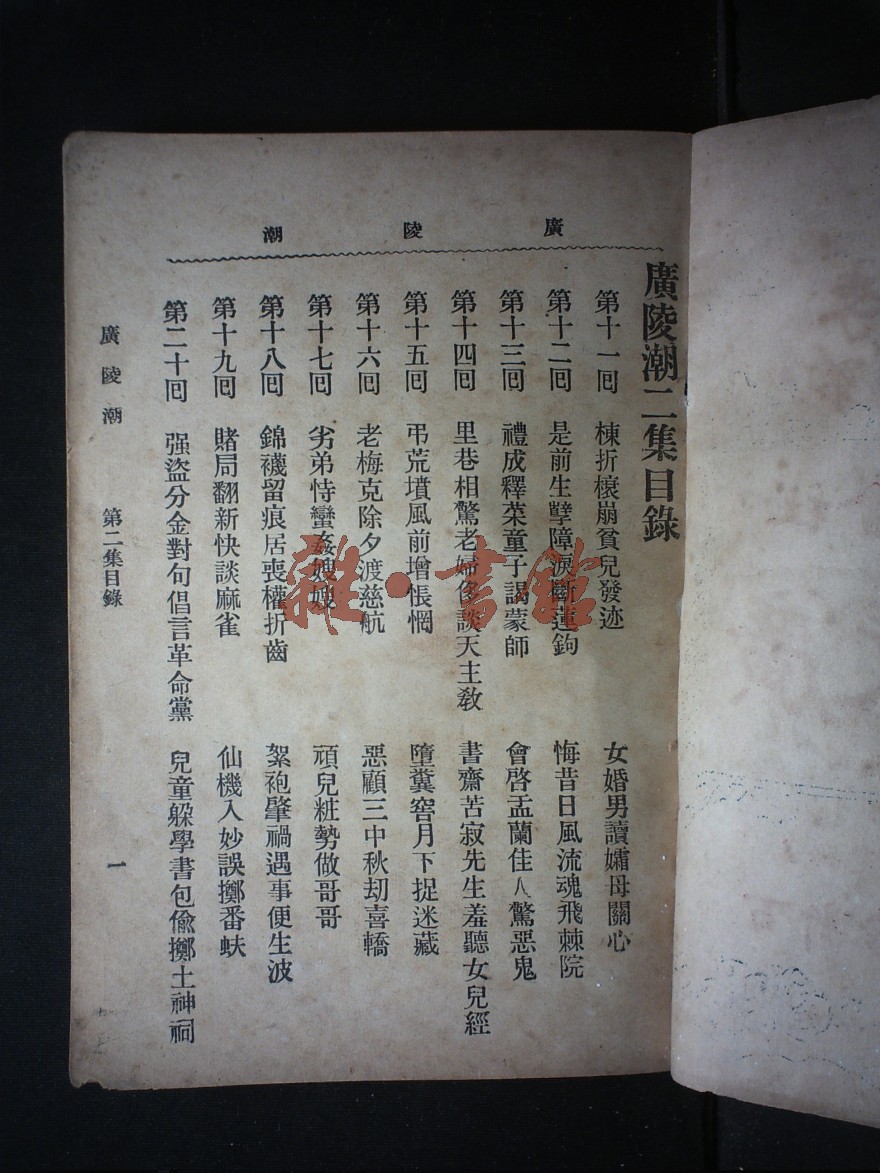 廣陵潮
廣陵潮二集目錄
第十一回 棟折榱崩貧兒發迹 女婚男讀孀母關心
第十二回 是前生孽障淚斷蓮鉤 悔昔日風流魂飛棘院
第十三回 禮成釋菜童子謁蒙師 會啓盂蘭佳人驚惡鬼
第十四回 里巷相驚老婦侈談天主教 書齋苦寂先生羞聽女兒經
第十五回 弔荒墳風前增悵惘 墮糞窖月下捉迷藏
第十六回 老梅克除夕渡慈航 惡顧三中秋刧喜轎
第十七回 劣弟恃蠻姦嫂嫂 頑兒粧勢做哥哥
第十八回 錦襪留痕居喪權折齒 絮袍肇禍遇事便生波
第十九回 賭局翻新快談麻雀 仙機入妙誤擲番蚨
第二十回 强盜分金對句倡言革命黨 兒童躲學書包偸擲土神祠
廣陵潮 第二集目錄 一
雜·書館